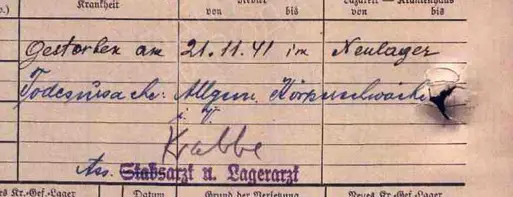 o.) Krankheit von bis Lazarett - Krankenhaus von bis
Gestorben am 21.11.41 im Neulager
Todesursache: Allgem. Körperschwäche
i. V.
Krabbe
Ass. Stabsarzt u. Lagerarzt
Kr.-Gef.-Lager Datum Grund der Versetzung Neues Kr.-Gef.-Lager